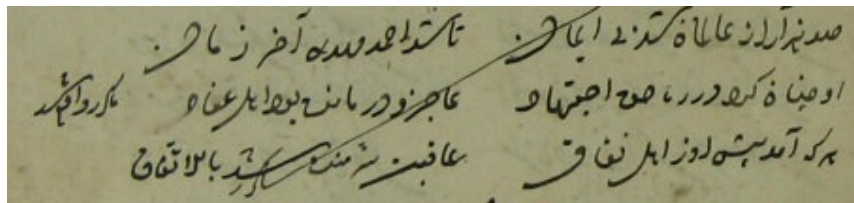 صد هزاران عالمان شد بی ایمان تا شد احمد مهدی آخر زمان
او چنان کرد در ره حق اجتهاد عاجز و درمانده بود اهل عناد
هر که آمد پیش او ز اهل نفاق عاقبت شرمنده شد بالاتفاق